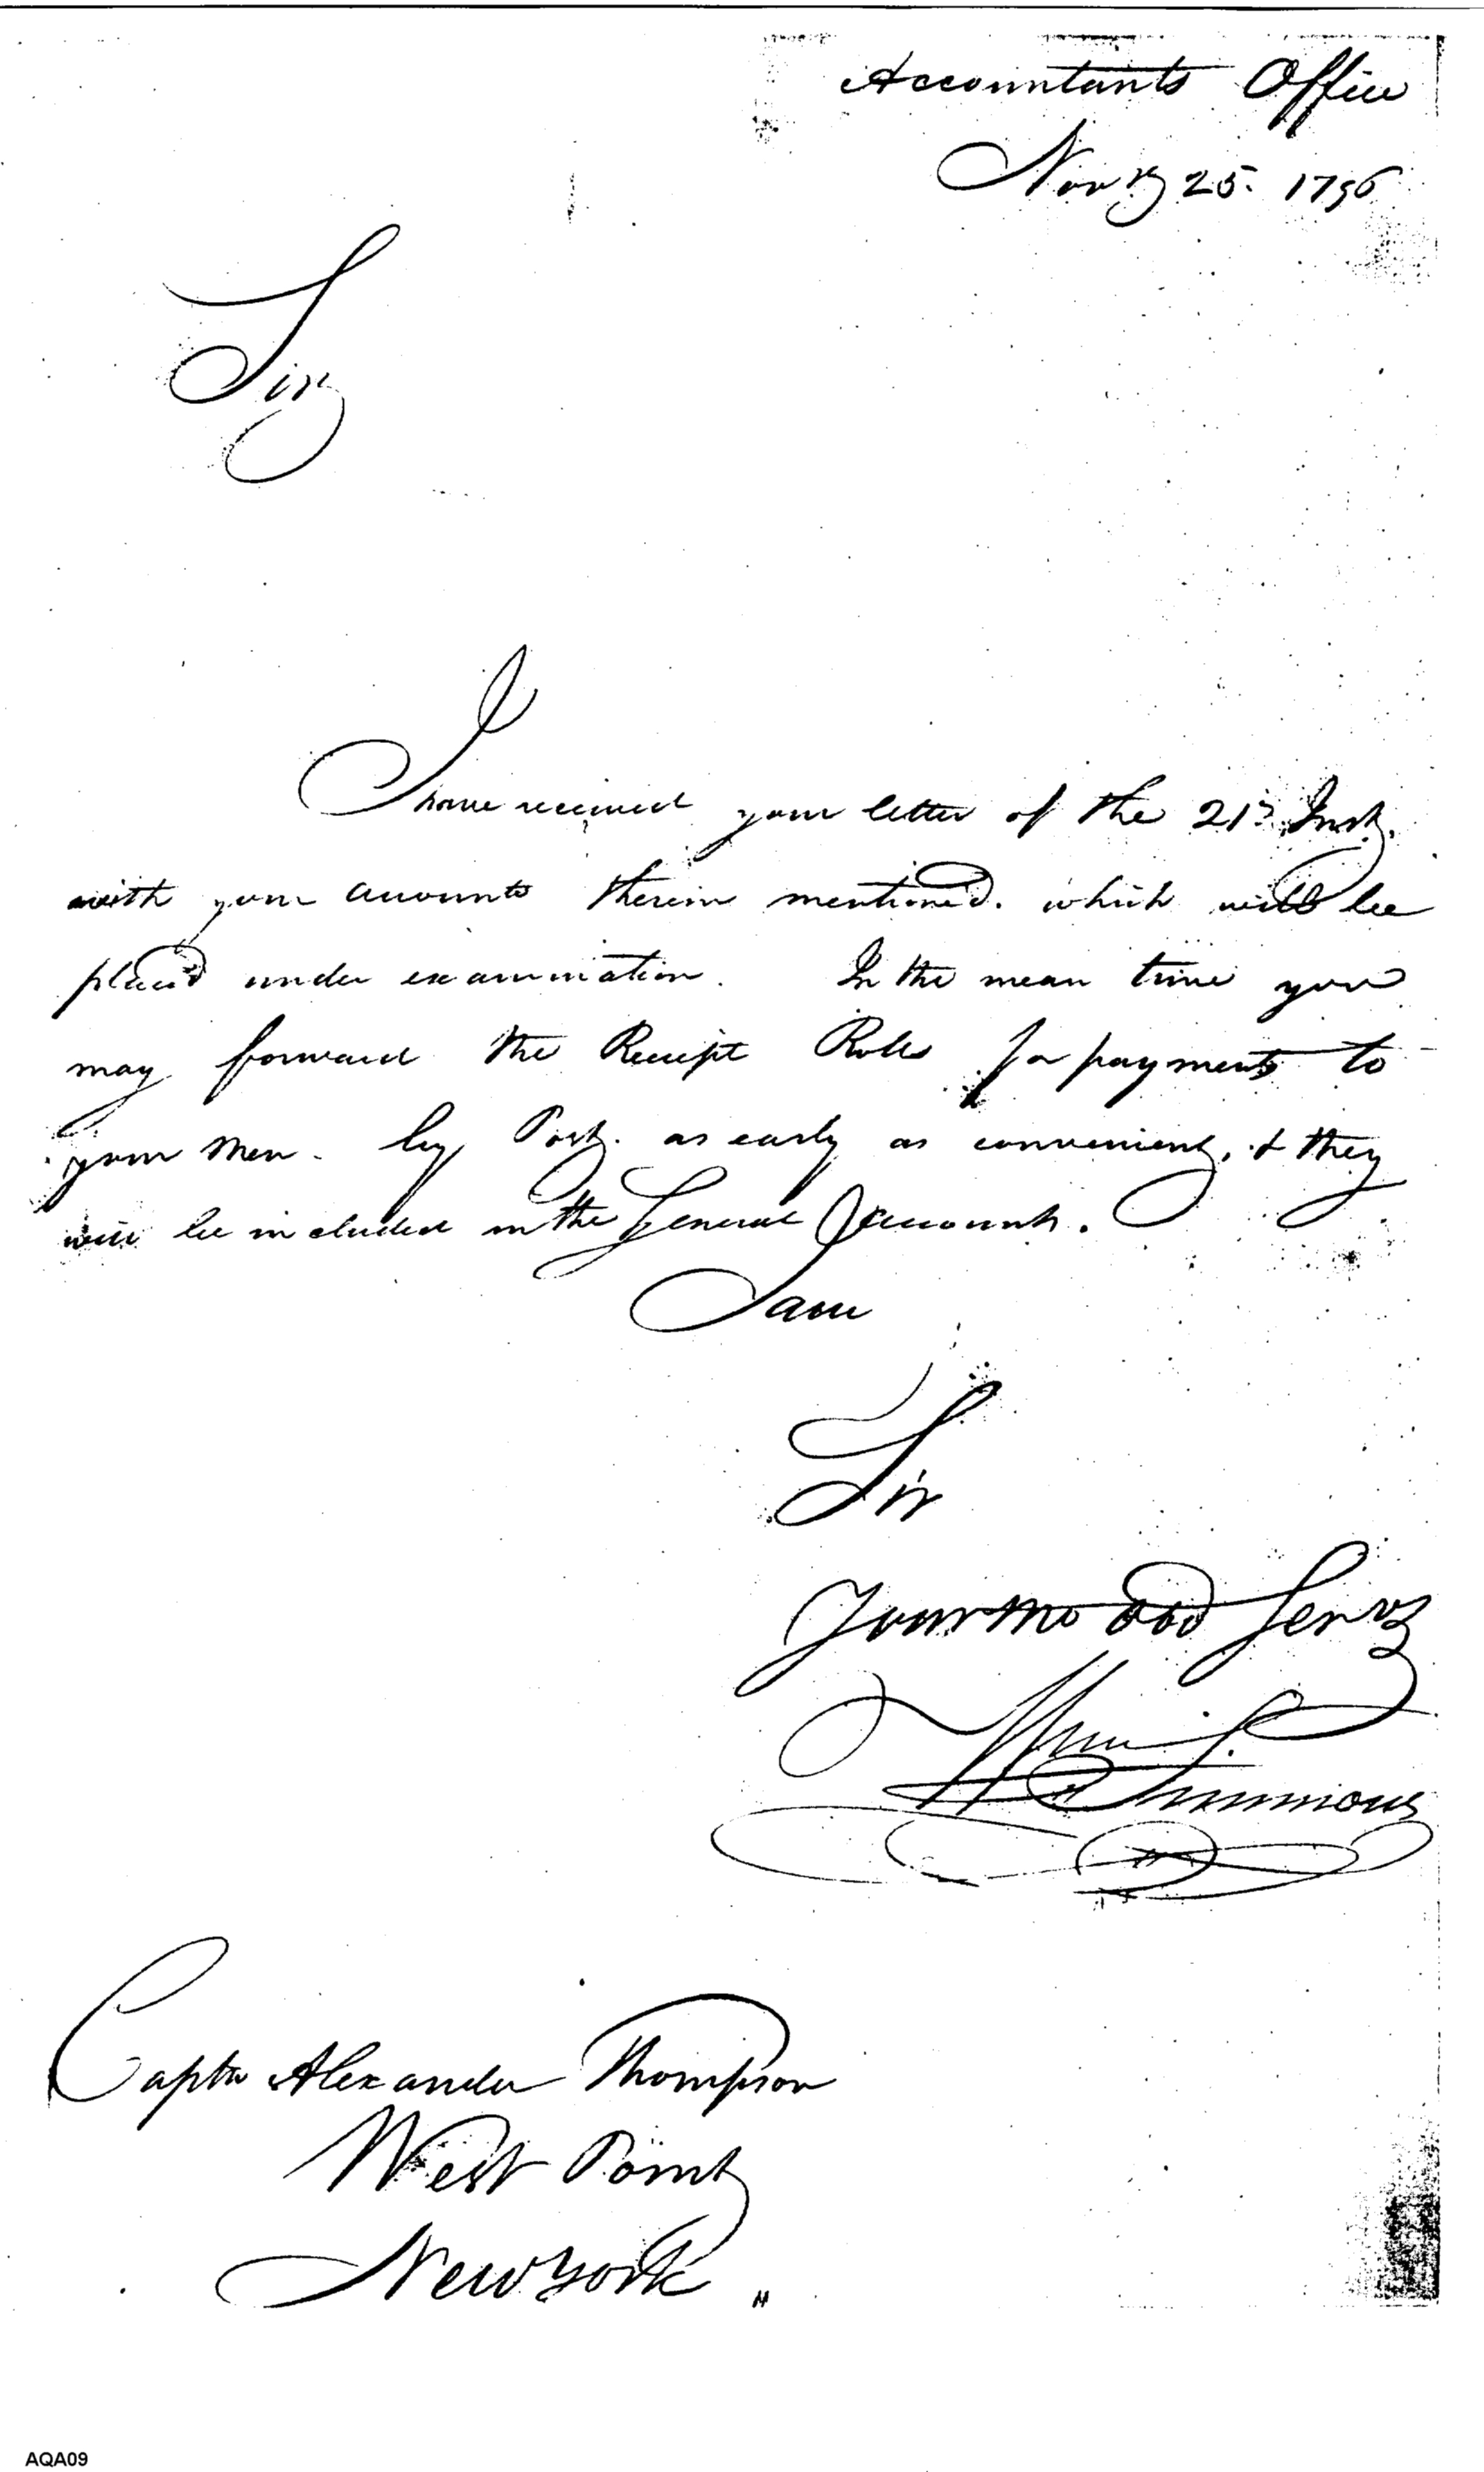 Accountants Office
Novr 25. 1796
Sir
I have received your letter of the 21st Inst.
with your accounts therein mentioned. which will be
placed under examination. In the mean time you
may forward the Receipt Rolls for payments to
your Men. by Post. as early as convenient, & they
will be included in the General Account.
I am
Sir
Your mo Obd Serv
Wm Simmons
Captn Alexander Thompson
West Point
New York "
AQA09